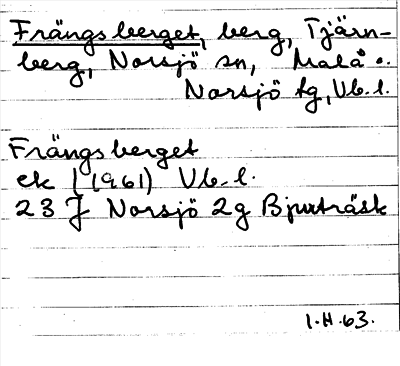 Frängsberget, berg, Tjärn-
berg, Norsjö sn, Malå o.
Norsjö tg, Vb. l.
Frängsberget
ek (1961) Vb. l.
23 J Norsjö 2g Bjurträsk
1.H.63.